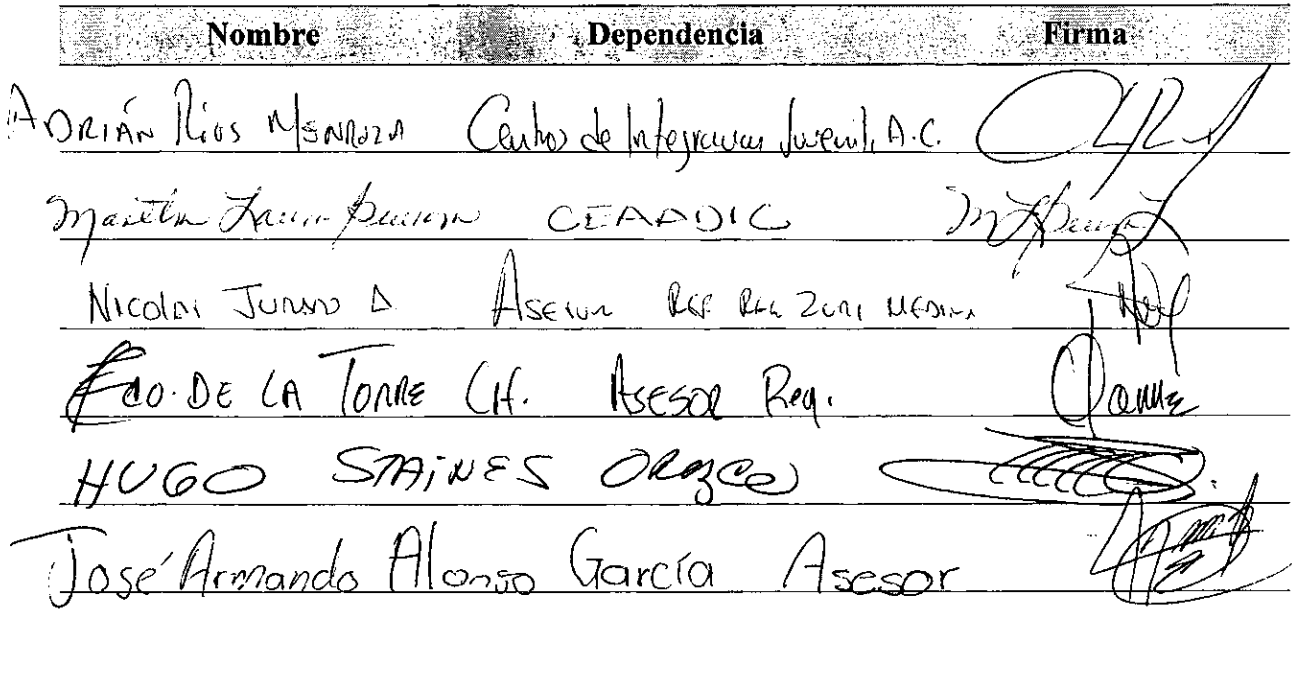 Nombre Dependencia Firma
ADRIÁN Ríos MENDOZA Centros de Integracion Juvenil, A.C.
Martha Laura CEAADIC
NICOLAS JURADO D. ASESOR REG ZURI MEDINA
Fco. DE LA TORRE CH. ASESOR Reg.
HUGO STAINES OROZCO
José Armando Alonso García Asesor